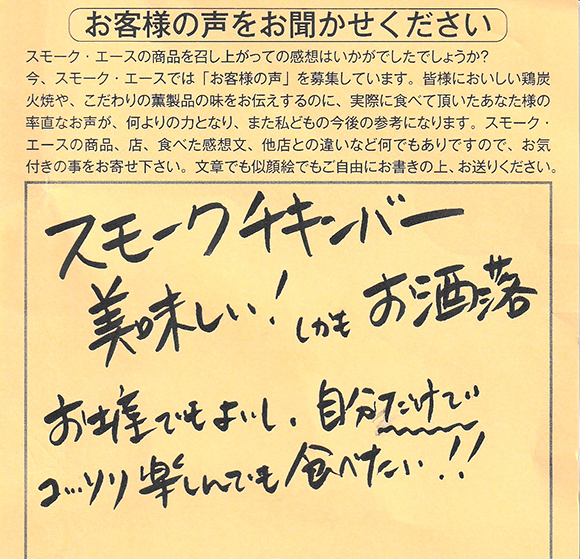 お客様の声をお聞かせください
スモーク・エースの商品を召し上がっての感想はいかがでしたでしょうか?
今、スモーク・エースでは「お客様の声」を募集しています。皆様においしい鶏炭
火焼や、こだわりの薫製品の味をお伝えするのに、実際に食べて頂いたあなた様の
率直なお声が、何よりの力となり、また私どもの今後の参考になります。スモーク・
エースの商品、店、食べた感想文、他店との違いなど何でもありですので、お気
付きの事をお寄せ下さい。文章でも似顔絵でもご自由にお書きの上、お送りください。
スモークチキンバー
美味しい！しかもお洒落
お土産でもよいし、自分だけで
コッソリ楽しんでも食べたい!!